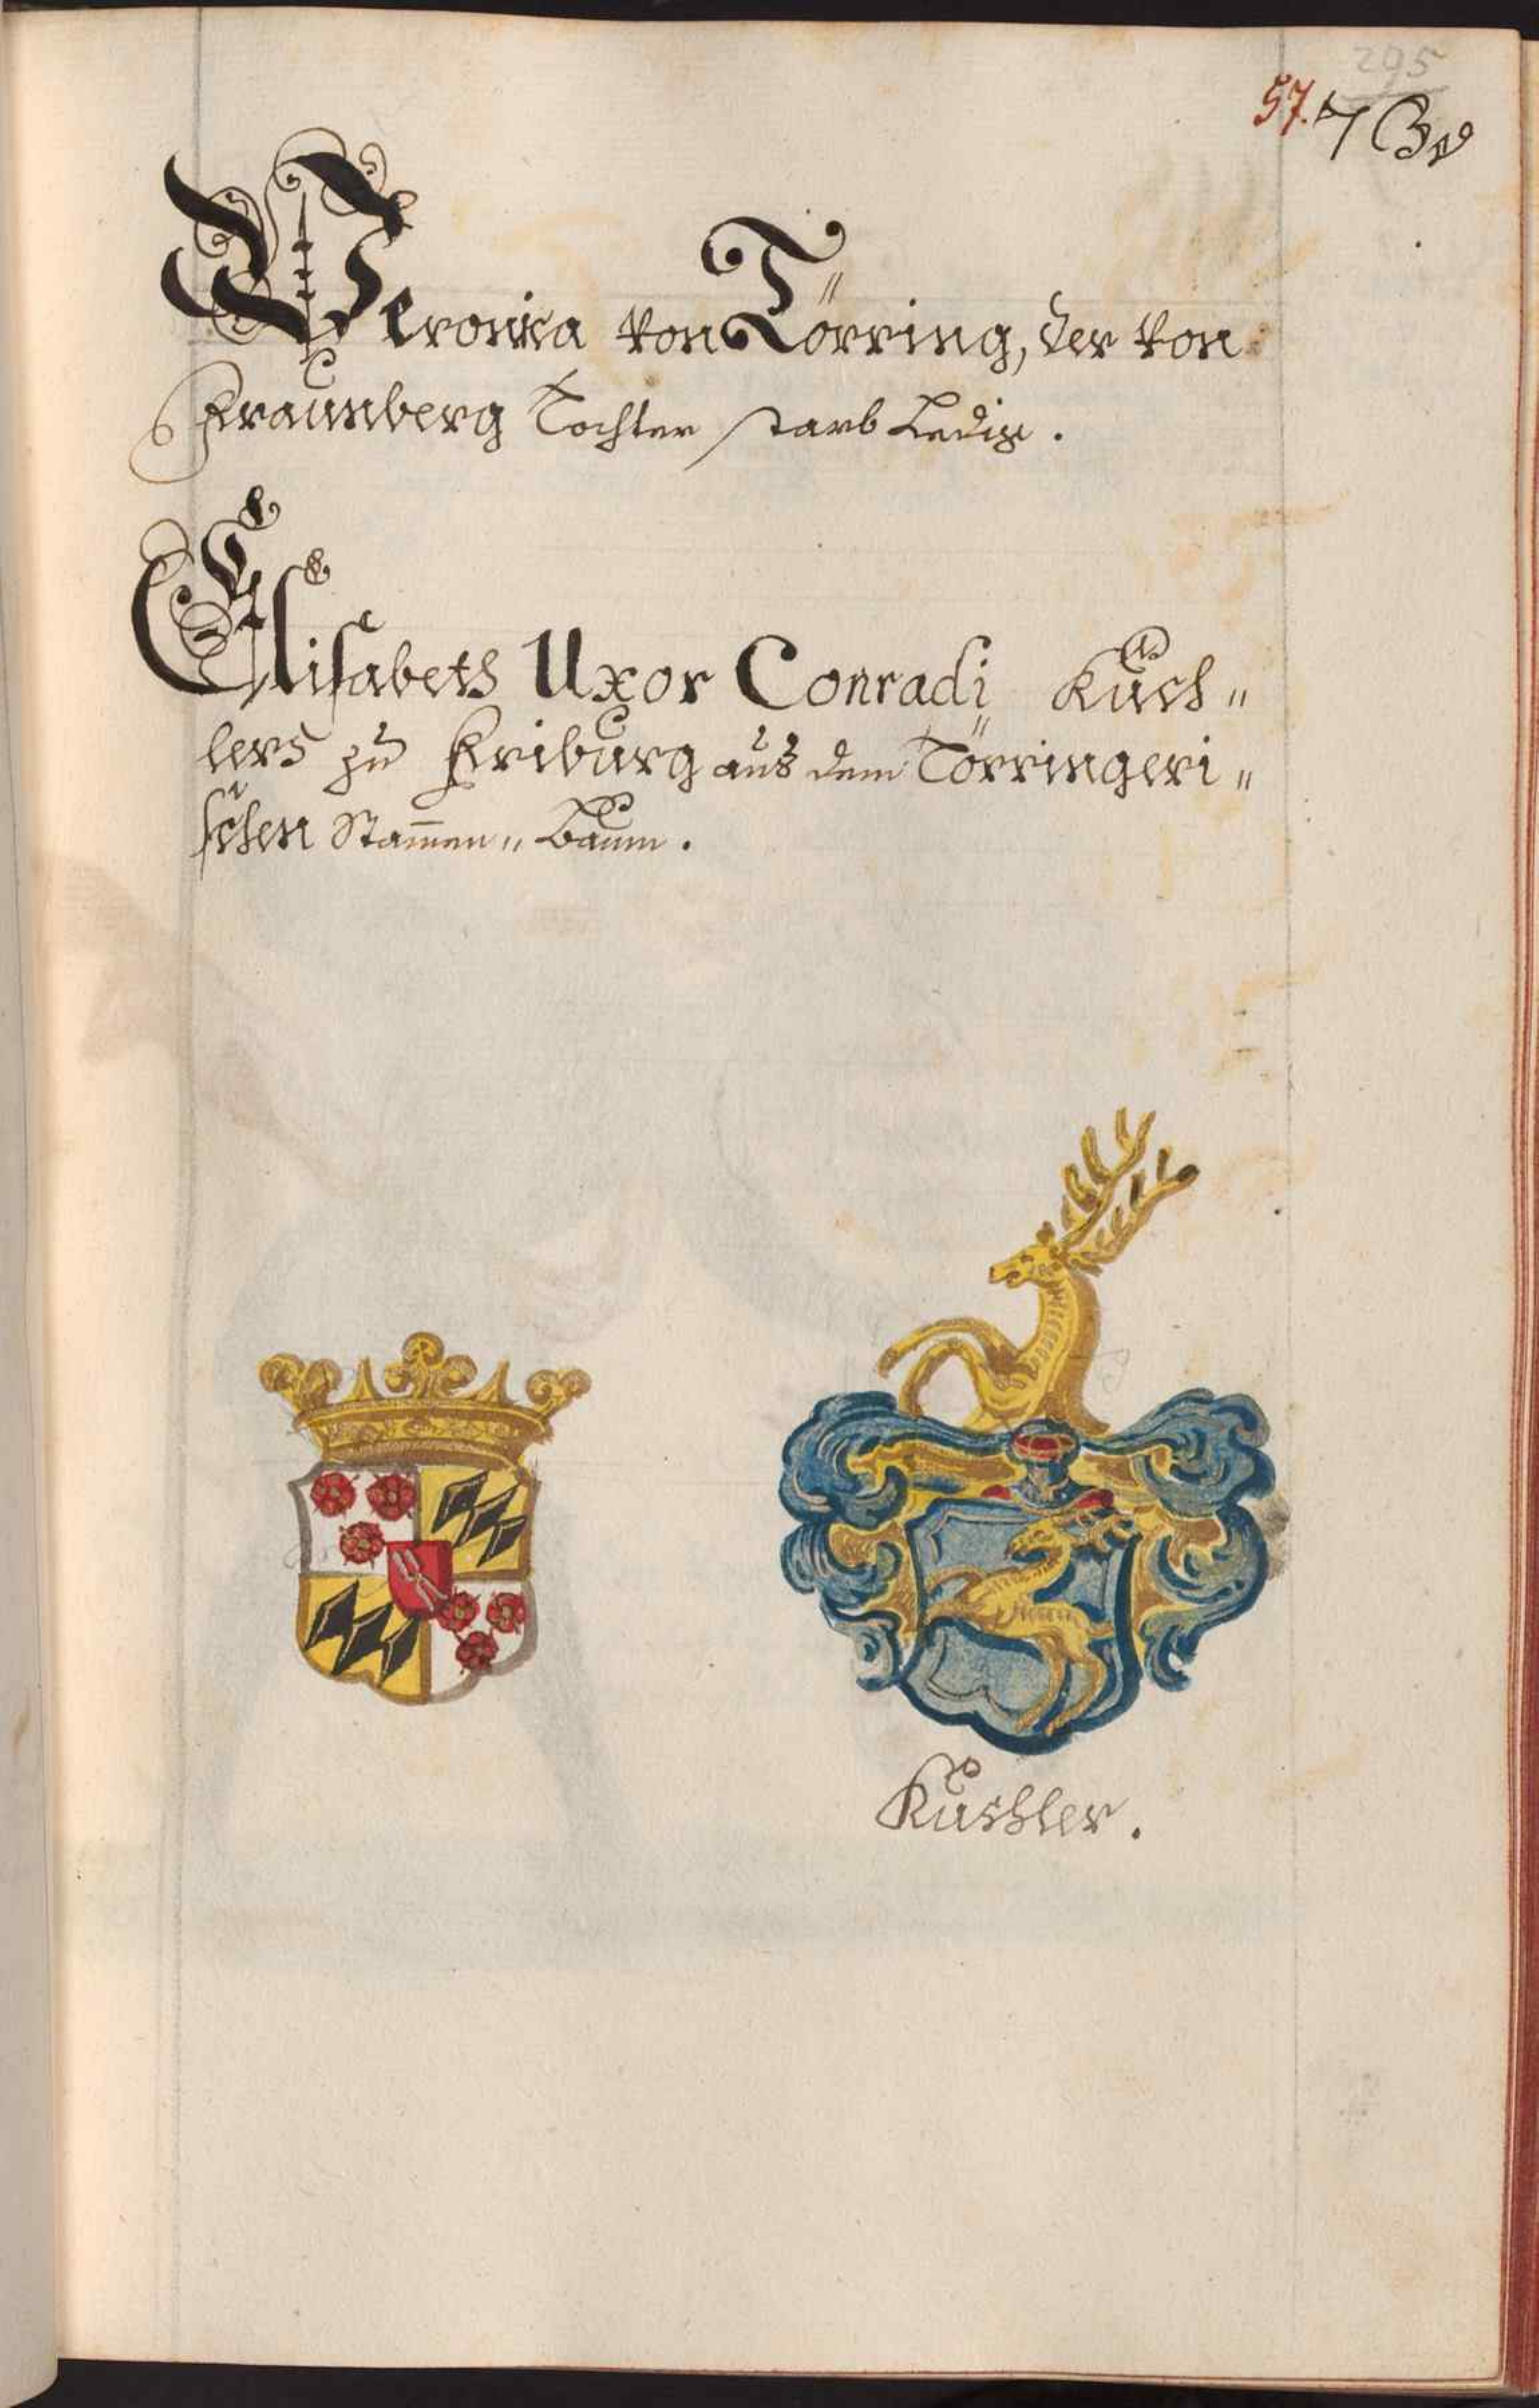 295
57.
Veronica von Törring, der von
Fraunberg Tochter starb Ledig.
Elisabeth Uxor Conradi Kuch„
lers zu Friburg aus dem Törringeri„
schen Stam̅en„Baum.
Kuchler.